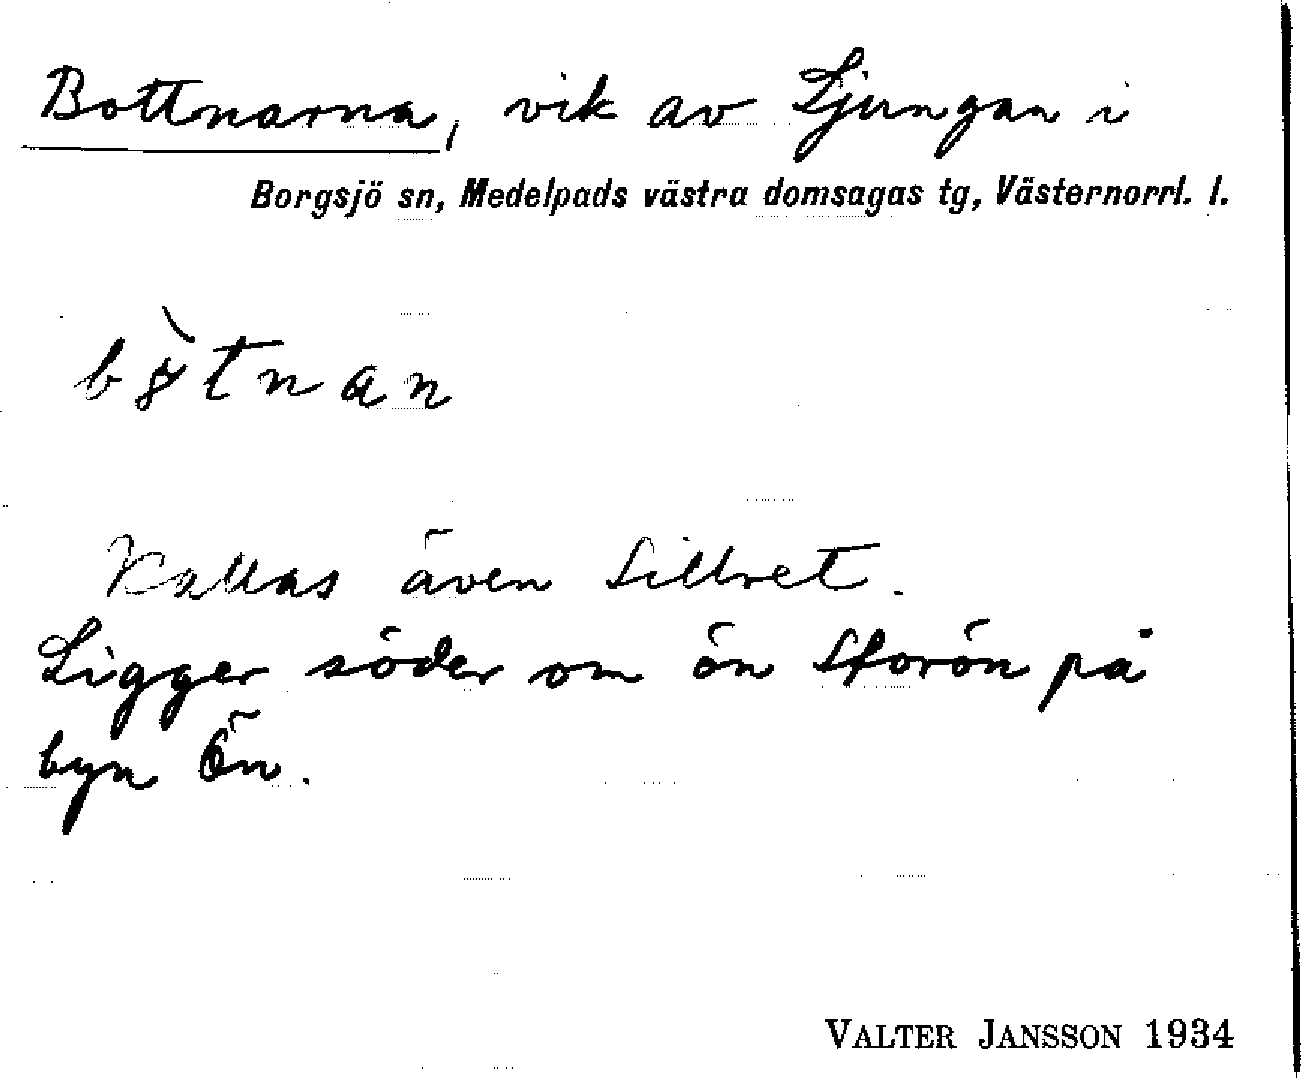 Bottnarna, vik av Ljungan i
Borgsjö sn, Medelpads västra domsagas tg, Västernorrl. l.
Kallas även Sillret.
Ligger söder om ön Storön på
byn Ön.
VALTER JANSSON 1934